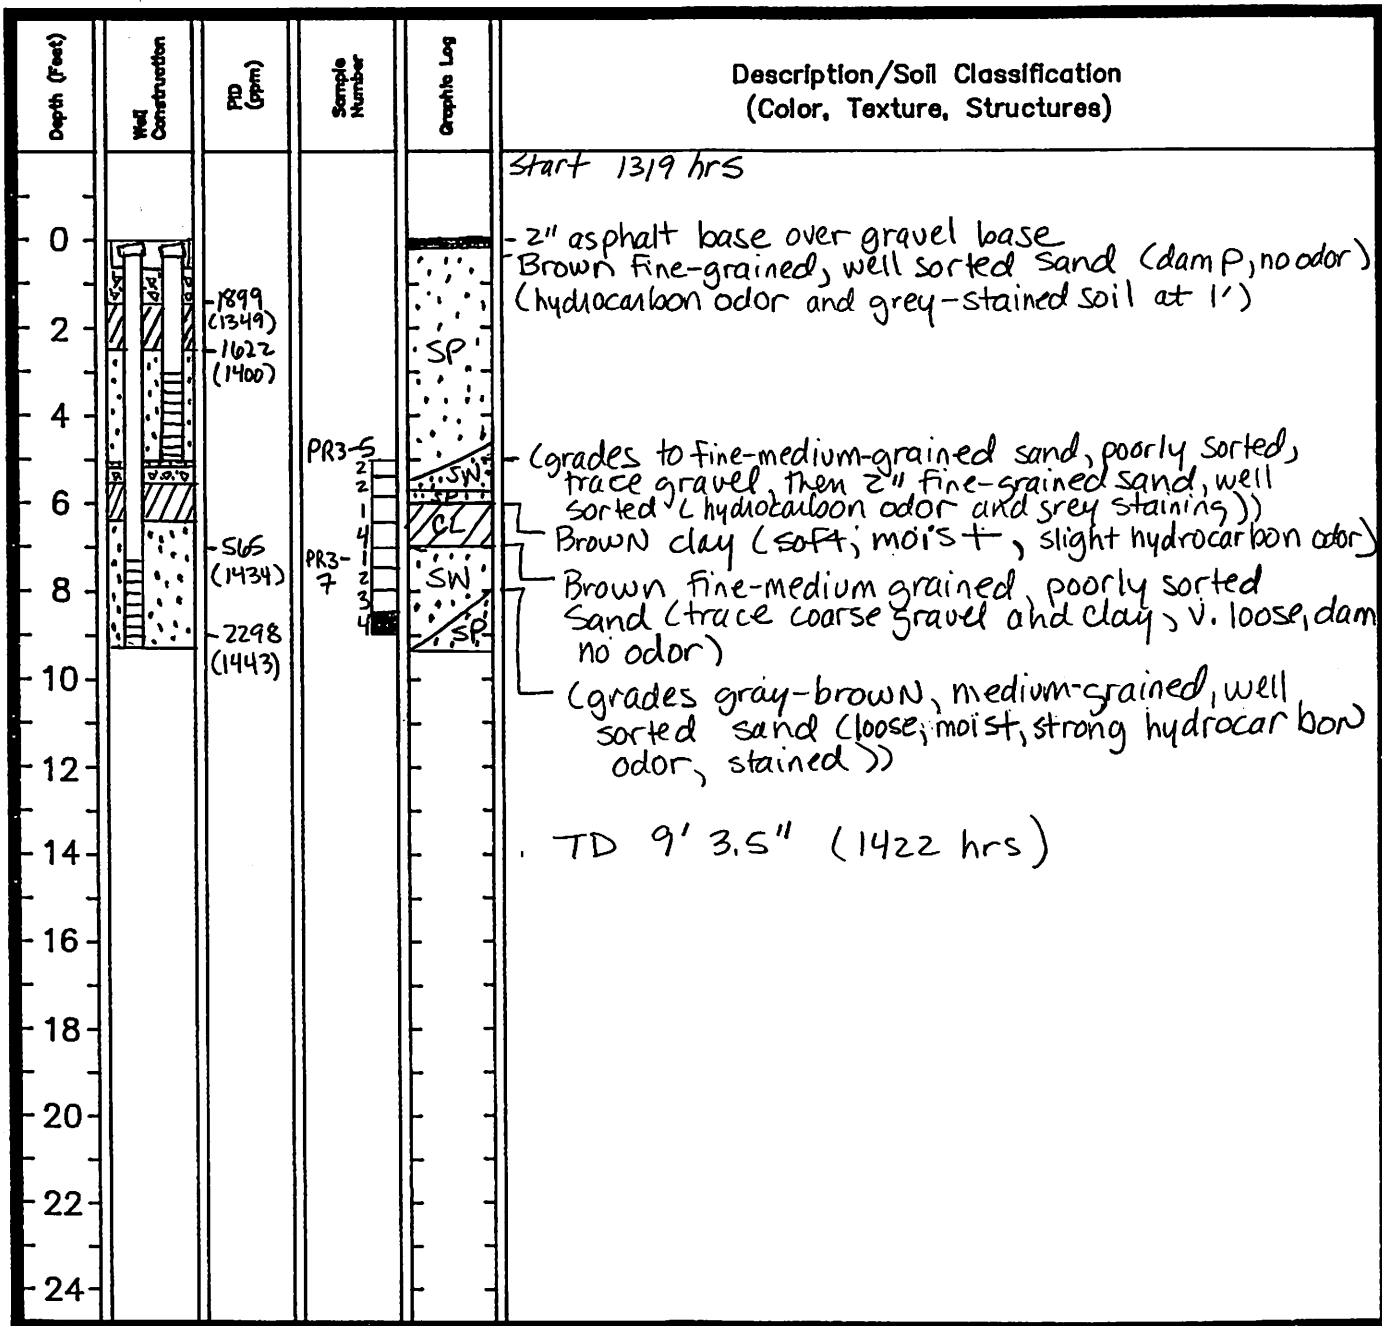 Depth (Feet)
Well Construction
PID (ppm)
Sample Number
Graphic Log
Description/Soil Classification
(Color, Texture, Structures)
Start 1319 hrs
0
2
4
6
8
10
12
14
16
18
20
22
24
1899
(1349)
1622
(1400)
565
(1434)
2298
(1443)
PR3-5
2
2
1
4
PR3-
7
1
2
3
4
SP
SW
SP
CL
SW
SP
- 2" asphalt base over gravel base
Brown fine-grained, well sorted sand (damp, no odor)
(hydrocarbon odor and grey-stained soil at 1')
(grades to fine-medium-grained sand, poorly sorted,
trace gravel, then 2" fine-grained sand, well
sorted (hydrocarbon odor and grey staining))
Brown clay (soft, moist, slight hydrocarbon odor)
Brown fine-medium grained, poorly sorted
sand (trace coarse gravel and clay, v. loose, dam
no odor)
(grades gray-brown, medium-grained, well
sorted sand (loose, moist, strong hydrocarbon
odor, stained))
TD 9' 3.5" (1422 hrs)